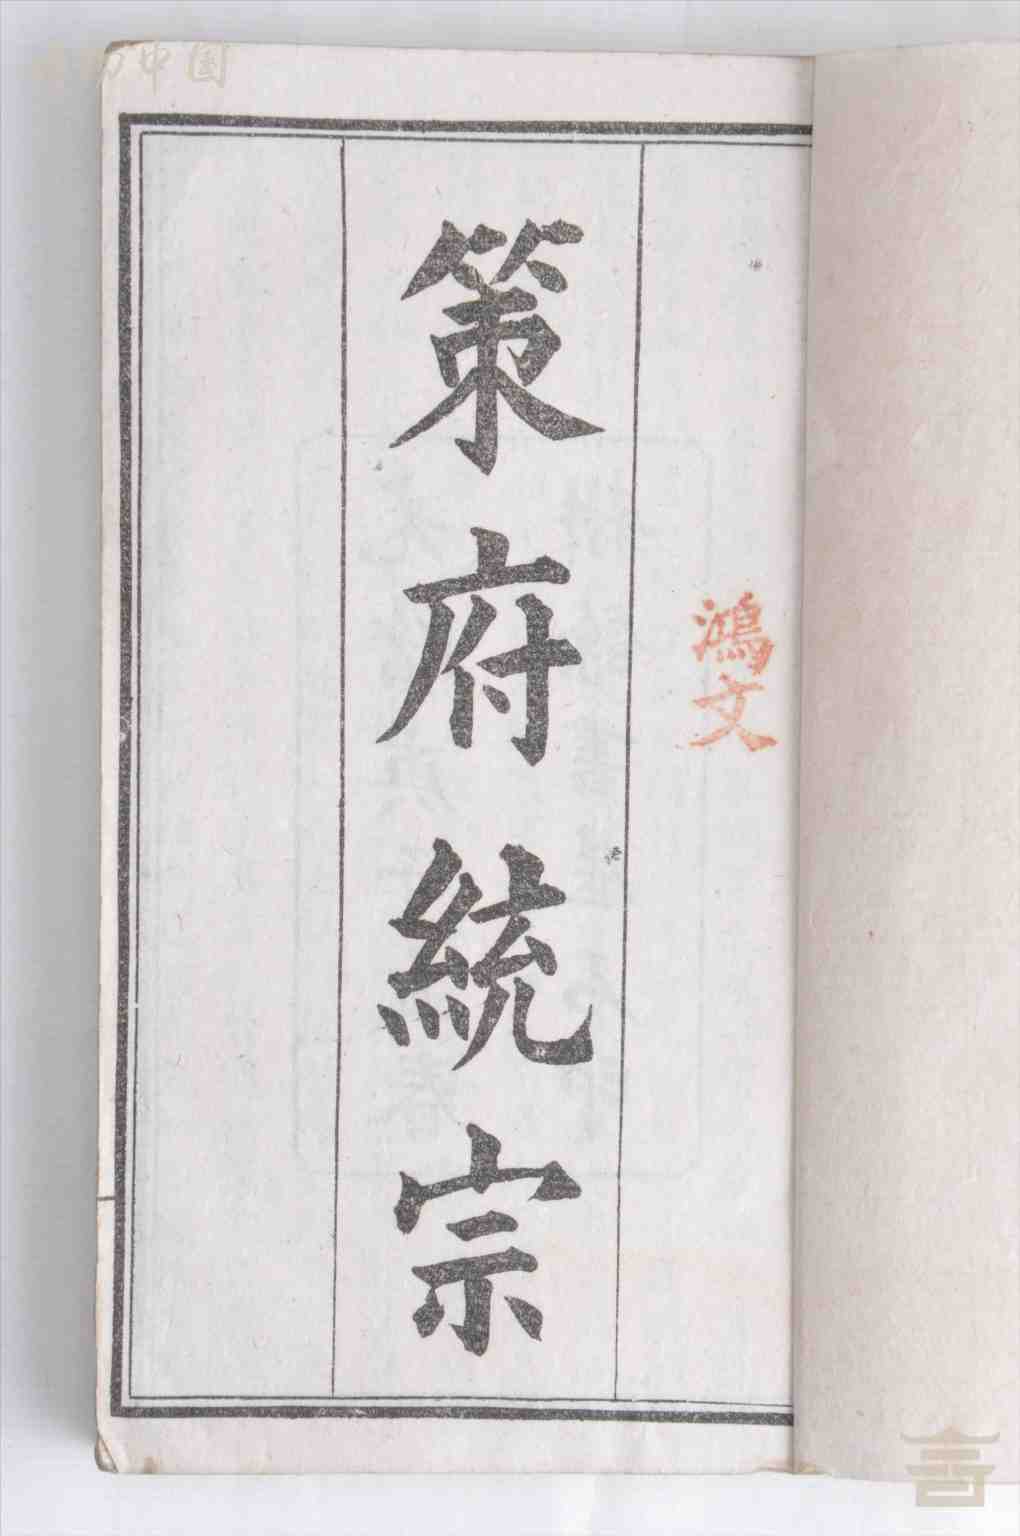 鴻文
策府統宗
中國